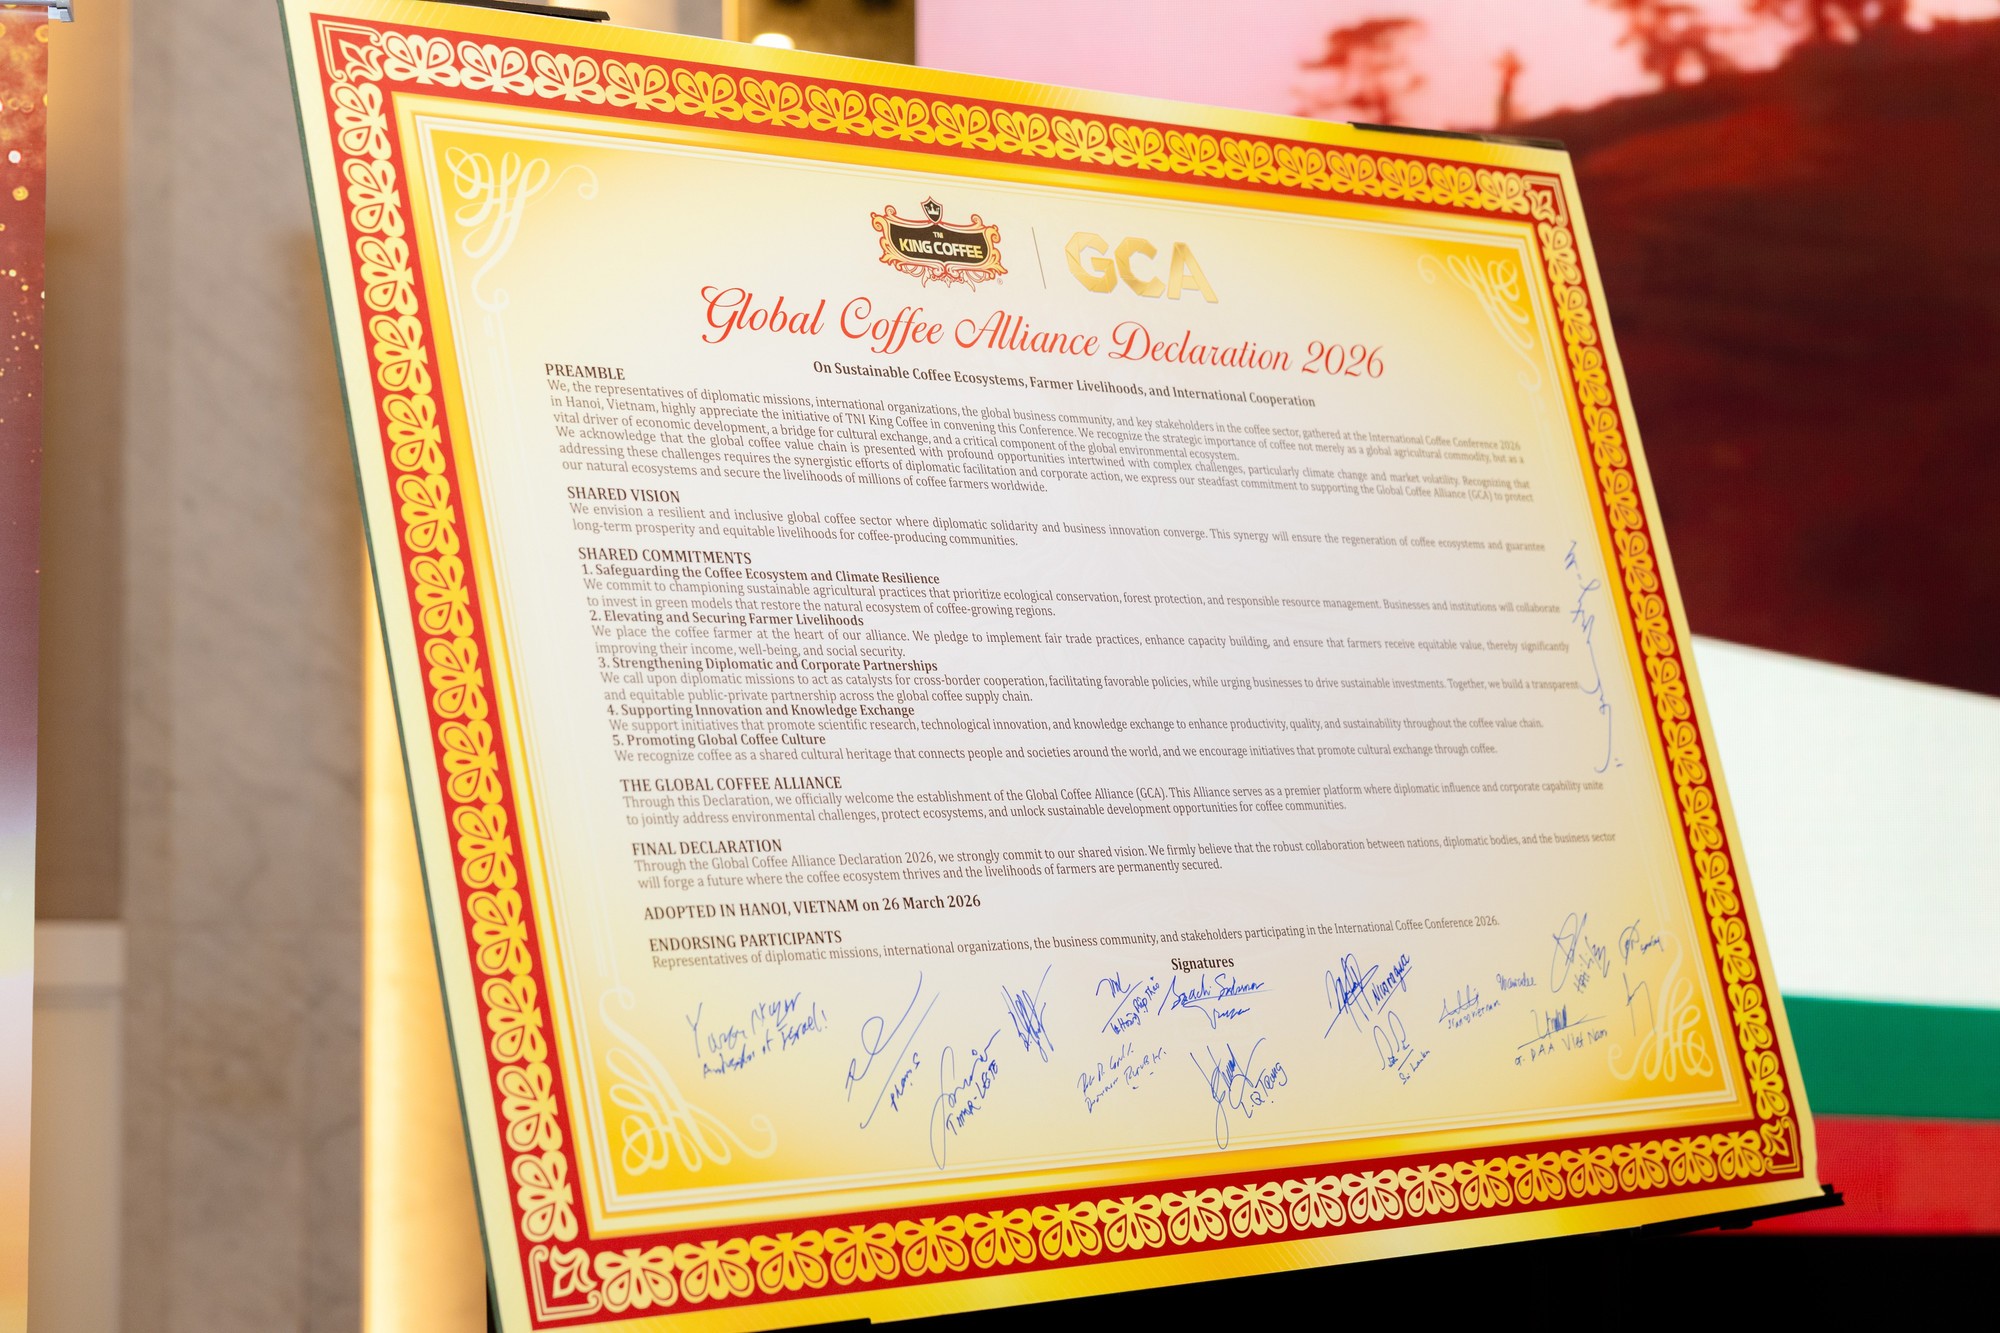 TNI
KING COFFEE
GCA
Global Coffee Alliance Declaration 2026
On Sustainable Coffee Ecosystems, Farmer Livelihoods, and International Cooperation
PREAMBLE
We, the representatives of diplomatic missions, international organizations, the global business community, and key stakeholders in the coffee sector, gathered at the International Coffee Conference 2026
in Hanoi, Vietnam, highly appreciate the initiative of TNI King Coffee in convening this Conference. We recognize the strategic importance of coffee not merely as a global agricultural commodity, but as a
vital driver of economic development, a bridge for cultural exchange, and a critical component of the global environmental ecosystem.
We acknowledge that the global coffee value chain is presented with profound opportunities intertwined with complex challenges, particularly climate change and market volatility. Recognizing that
addressing these challenges requires the synergistic efforts of diplomatic facilitation and corporate action, we express our steadfast commitment to supporting the Global Coffee Alliance (GCA) to protect
our natural ecosystems and secure the livelihoods of millions of coffee farmers worldwide.
SHARED VISION
We envision a resilient and inclusive global coffee sector where diplomatic solidarity and business innovation converge. This synergy will ensure the regeneration of coffee ecosystems and guarantee
long-term prosperity and equitable livelihoods for coffee-producing communities.
SHARED COMMITMENTS
1. Safeguarding the Coffee Ecosystem and Climate Resilience
We commit to championing sustainable agricultural practices that prioritize ecological conservation, forest protection, and responsible resource management. Businesses and institutions will collaborate
to invest in green models that restore the natural ecosystem of coffee-growing regions.
2. Elevating and Securing Farmer Livelihoods
We place the coffee farmer at the heart of our alliance. We pledge to implement fair trade practices, enhance capacity building, and ensure that farmers receive equitable value, thereby significantly
improving their income, well-being, and social security.
3. Strengthening Diplomatic and Corporate Partnerships
We call upon diplomatic missions to act as catalysts for cross-border cooperation, facilitating favorable policies, while urging businesses to drive sustainable investments. Together, we build a transparent
and equitable public-private partnership across the global coffee supply chain.
4. Supporting Innovation and Knowledge Exchange
We support initiatives that promote scientific research, technological innovation, and knowledge exchange to enhance productivity, quality, and sustainability throughout the coffee value chain.
5. Promoting Global Coffee Culture
We recognize coffee as a shared cultural heritage that connects people and societies around the world, and we encourage initiatives that promote cultural exchange through coffee.
THE GLOBAL COFFEE ALLIANCE
Through this Declaration, we officially welcome the establishment of the Global Coffee Alliance (GCA). This Alliance serves as a premier platform where diplomatic influence and corporate capability unite
to jointly address environmental challenges, protect ecosystems, and unlock sustainable development opportunities for coffee communities.
FINAL DECLARATION
Through the Global Coffee Alliance Declaration 2026, we strongly commit to our shared vision. We firmly believe that the robust collaboration between nations, diplomatic bodies, and the business sector
will forge a future where the coffee ecosystem thrives and the livelihoods of farmers are permanently secured.
ADOPTED IN HANOI, VIETNAM on 26 March 2026
ENDORSING PARTICIPANTS
Representatives of diplomatic missions, international organizations, the business community, and stakeholders participating in the International Coffee Conference 2026.
Signatures
of Israel!
TIMOR-LESTE
Nicaragua
Sri Lanka
Viet Nam